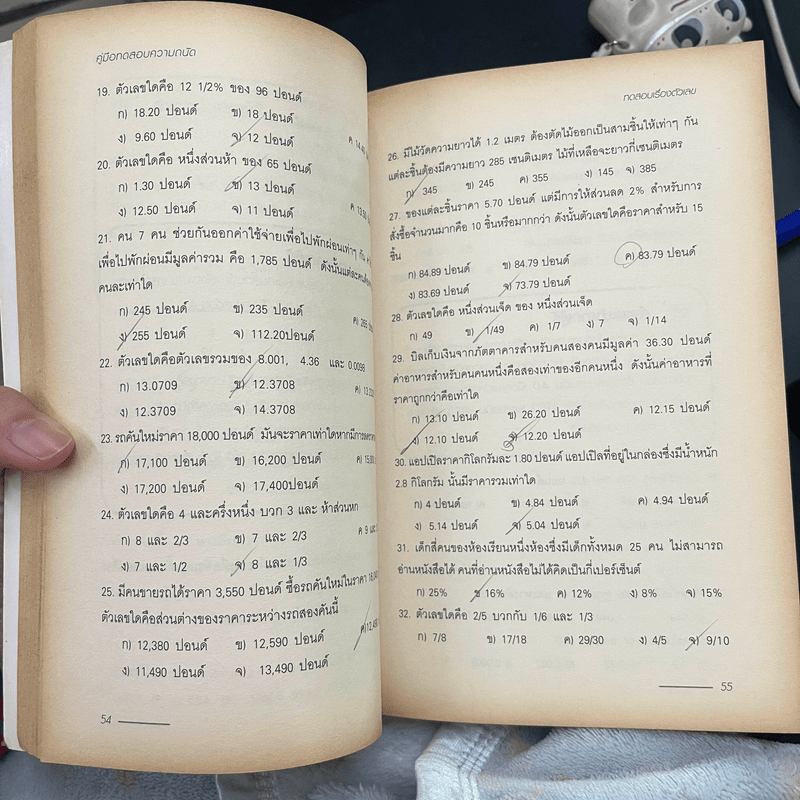 คู่มือทดสอบความถนัด
19. ตัวเลขใดคือ 12 1/2% ของ 96 ปอนด์
ก) 18.20 ปอนด์ ข) 18 ปอนด์
ง) 9.60 ปอนด์ จ) 12 ปอนด์ ค 14.40
20. ตัวเลขใดคือ หนึ่งส่วนห้า ของ 65 ปอนด์
ก) 1.30 ปอนด์ ข) 13 ปอนด์
ง) 12.50 ปอนด์ จ) 11 ปอนด์ ค 13.50
21. คน 7 คน ช่วยกันออกค่าใช้จ่ายเพื่อไปพักผ่อนเท่าๆ กัน
เพื่อไปพักผ่อนมีมูลค่ารวม คือ 1,785 ปอนด์ ดังนั้นแต่ละคน
คนละเท่าใด
ก) 245 ปอนด์ ข) 235 ปอนด์
ง) 255 ปอนด์ จ) 112.20ปอนด์ ค) 265 ปอนด์
22. ตัวเลขใดคือตัวเลขรวมของ 8.001, 4.36 และ 0.0098
ก) 13.0709 ข) 12.3708
ง) 12.3709 จ) 14.3708
23. รถคันใหม่ราคา 18,000 ปอนด์ มันจะราคาเท่าใดหากมีการ
ก) 17,100 ปอนด์ ข) 16,200 ปอนด์
ง) 17,200 ปอนด์ จ) 17,400ปอนด์
24. ตัวเลขใดคือ 4 และครึ่งหนึ่ง บวก 3 และ ห้าส่วนหก
ก) 8 และ 2/3 ข) 7 และ 2/3 ค 9 และ
ง) 7 และ 1/2 จ) 8 และ 1/3
25. มีคนขายรถได้ราคา 3,550 ปอนด์ ซื้อรถคันใหม่ในราคา
ตัวเลขใดคือส่วนต่างของราคาระหว่างรถสองคันนี้
ก) 12,380 ปอนด์ ข) 12,590 ปอนด์
ง) 11,490 ปอนด์ จ) 13,490 ปอนด์
54
ทดสอบเรื่องตัวเลข
26. มีไม้วัดความยาวได้ 1.2 เมตร ต้องตัดไม้ออกเป็นสามชิ้นให้เท่าๆ กัน
แต่ละชิ้นต้องมีความยาว 285 เซนติเมตร ไม้ที่เหลือจะยาวกี่เซนติเมตร
ก) 345 ข) 245 ค) 355 ง) 145 จ) 385
27. ของแต่ละชิ้นราคา 5.70 ปอนด์ แต่มีการให้ส่วนลด 2% สำหรับการ
สั่งซื้อจำนวนมากคือ 10 ชิ้นหรือมากกว่า ดังนั้นตัวเลขใดคือราคาสำหรับ 15
ชิ้น
ก) 84.89 ปอนด์ ข) 84.79 ปอนด์ ค) 83.79 ปอนด์
ง) 83.69 ปอนด์ จ) 73.79 ปอนด์
28. ตัวเลขใดคือ หนึ่งส่วนเจ็ด ของ หนึ่งส่วนเจ็ด
ก) 49 ข) 1/49 ค) 1/7 ง) 7 จ) 1/14
29. บิลเก็บเงินจากภัตตาคารสำหรับคนสองคนมีมูลค่า 36.30 ปอนด์
ค่าอาหารสำหรับคนคนหนึ่งคือสองเท่าของอีกคนหนึ่ง ดังนั้นค่าอาหารที่
ราคาถูกกว่าคือเท่าใด
ก) 13.10 ปอนด์ ข) 26.20 ปอนด์ ค) 12.15 ปอนด์
ง) 12.10 ปอนด์ จ) 12.20 ปอนด์
30. แอปเปิลราคากิโลกรัมละ 1.80 ปอนด์ แอปเปิลที่อยู่ในกล่องซึ่งมีน้ำหนัก
2.8 กิโลกรัม นั้นมีราคารวมเท่าใด
ก) 4 ปอนด์ ข) 4.84 ปอนด์ ค) 4.94 ปอนด์
ง) 5.14 ปอนด์ จ) 5.04 ปอนด์
31. เด็กสี่คนของห้องเรียนหนึ่งห้องซึ่งมีเด็กทั้งหมด 25 คน ไม่สามารถ
อ่านหนังสือได้ คนที่อ่านหนังสือไม่ได้คิดเป็นกี่เปอร์เซ็นต์
ก) 25% ข 16% ค) 12% ง) 8% จ) 15%
32. ตัวเลขใดคือ 2/5 บวกกับ 1/6 และ 1/3
ก) 7/8 ข) 17/18 ค) 29/30 ง) 4/5 จ) 9/10
55